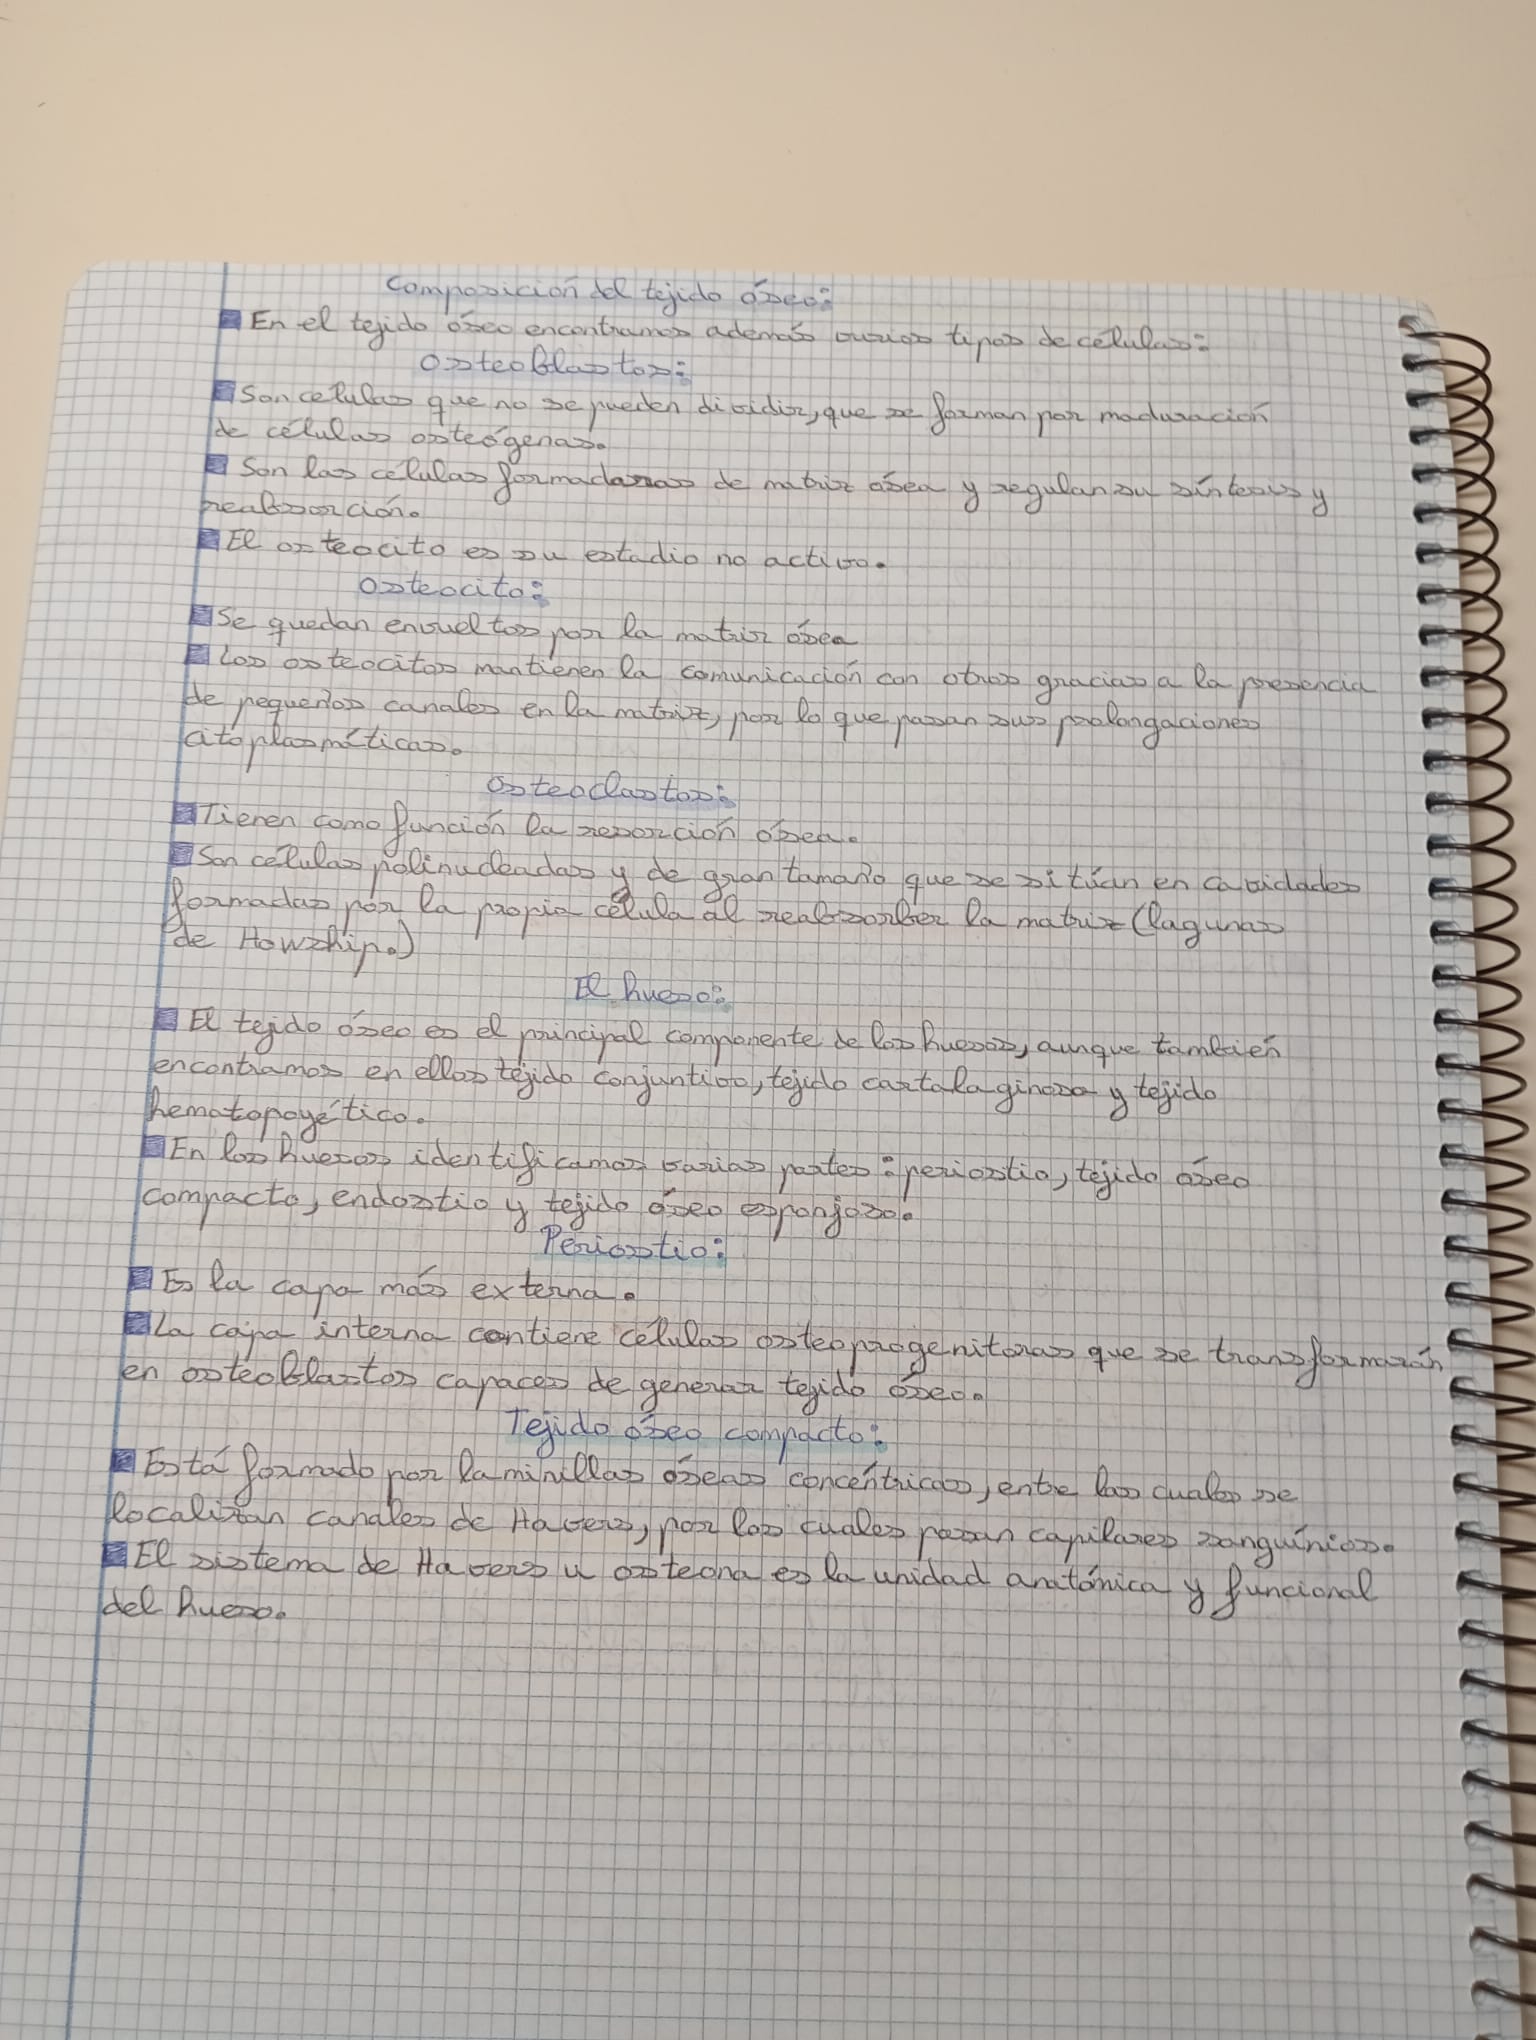 Composición del tejido óseo:
■ En el tejido óseo encontramos además varios tipos de células:
Osteoblastos:
■ Son celulas que no se pueden dividir, que se forman por maduración
de células osteógenas.
■ Son las células formadoras de matriz ósea y regulan su síntesis y
reabsorción.
■ El osteocito es su estadio no activo.
Osteocito:
■ Se quedan envueltos por la matriz ósea
■ Los osteocitos mantienen la comunicación con otros gracias a la presencia
de pequeños canales en la matriz, por lo que pasan sus prolongaciones
citoplasmáticas.
Osteoclastos:
■ Tienen como función la resorción ósea.
■ Son células polinucleadas y de gran tamaño que se sitúan en cavidades
formadas por la propia célula al reabsorber la matriz (lagunas
de Howship.)
El hueso:
■ El tejido óseo es el principal componente de los huesos, aunque también
encontramos en ellos tejido conjuntivo, tejido cartalaginoso y tejido
hematopoyético.
■ En los huesos identificamos varias partes: periostio, tejido óseo
compacto, endostio y tejido óseo esponjoso.
Periostio:
■ Es la capa más externa.
■ La capa interna contiene células osteoprogenitoras que se transformarán
en osteoblastos capaces de generar tejido óseo.
Tejido óseo compacto:
■ Está formado por laminillas óseas concéntricas, entre las cuales se
localizan canales de Havers, por los cuales pasan capilares sanguínios.
■ El sistema de Havers u osteona es la unidad anatómica y funcional
del hueso.